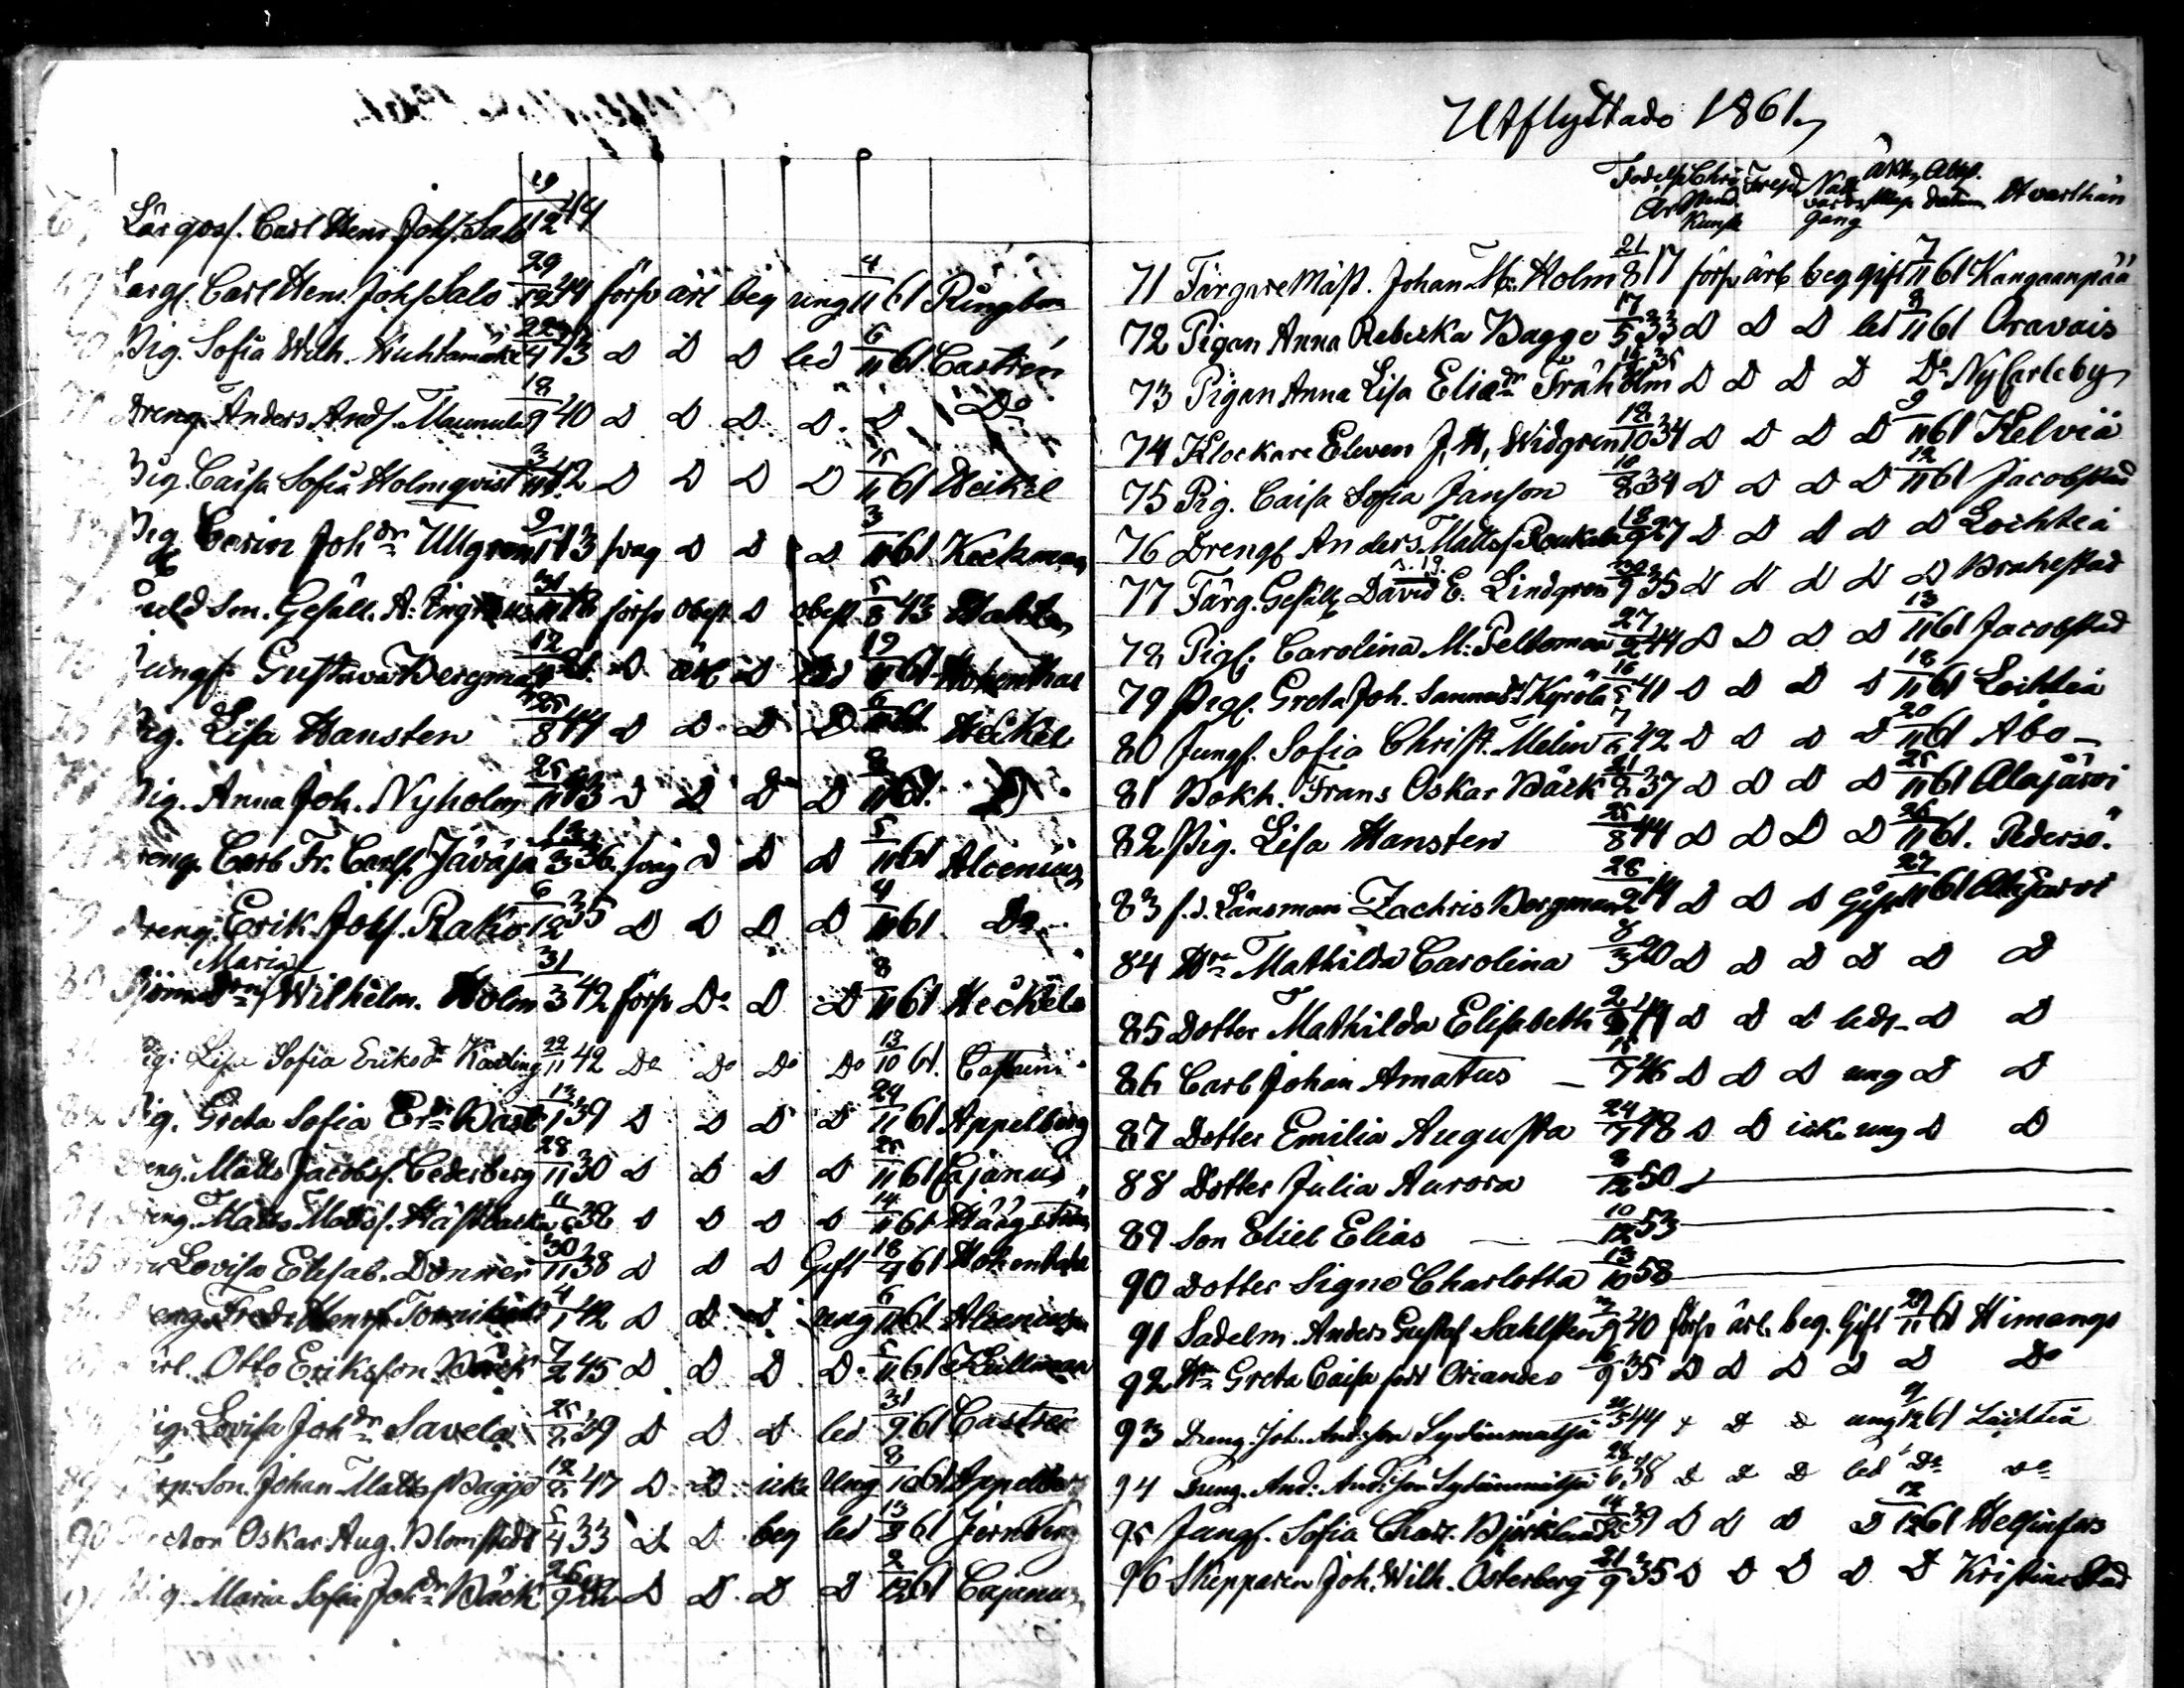 Lärgos. Carl Henr. Johs. Salo 29/12 44
69 Lärgs. Carl Henr. Johs Salo 29/12 44 försv ärl beg ung 4/11 61 Ringbom
70 Pig. Sofia Wilh. Kuhtamäki 22/4 43 D D D led 6/11 61 Castrén
71 Dreng. Anders Ands. Maunula 18/9 40 D D D D D Do
Pig. Caisa Sofia Holmqvist 3/11 42 D D D D 15/11 61 Heikel
Pig. Carin Joh dr Ullgren 9/1 43 svag D D D 3/11 61 Keckman
Guld Sm. Gesäll. A. 18 försv obeft D obeft 5/8 43
Jungf. Gustava Bergman D ärl D led 19/11 61 Hohenthal
Pig. Lisa Hansten 25/8 44 D D D D 61 Heikel
Pig. Anna Joh. Nyholm 25/11 43 D D D D 61 D
Dreng. Carl Fr. Carls. Jäväjä 13/3 36 svag D D D 5/11 61 Alcenius
79 Dreng. Erik Johs. Rako 6/12 35 D D D D 4/11 61 Do
Maria
80 Wilhelm. Holm 31/3 42 försv Do D D 8/11 61 Heikel
Pig. Lisa Sofia Eriksdr 22/11 42 Do Do Do Do 13/10 61. Castrén
82 Pig. Greta Sofia Er dr Bast 13/1 39 D D D D 24/11 61 Appelberg
8 Dreng. Matts Jacobs. Cederberg 28/11 30 D D D D 25/11 61 Cajanus
Dreng. Matts Matts s. Hästbacka 11/6 38 D D D D 14/11 61 Häggström
85 Fru Lovisa Elisab. Donner 30/11 38 D D D Gift 18/4 61 Hohenthal
Dreng. Fredr. Henrs 4/1 42 D D D ung 6/11 61 Alcenius
Otto Eriksson Bäck 7/2 45 D D D D 5/11 61 Kullman
Pig. Lovisa Joh dr Savela 25/2 39 D D D led 31/9 61 Castrén
89 Son. Johan Matts s Bagge 12/2 47 D D icke Ung 8/10 61 Appelberg
90 Rector Oskar Aug. Blomstedt 5/4 33 D D beg led 13/8 61 Jernberg
91 Pig. Maria Sofia Joh dr Bäck 26/9 42 D D D D 2/12 61 Cajanus
Utflyttade 1861.
Födelse År Chris Kunsk Frejd Natt vards gång Äkt.skap Attst. Datum Hvarthän
71 Färgare Mäst. Johan M. Holm 21/8 17 försv ärb beg gift 7/11 61 Kangaanpää
72 Pigan Anna Rebecka Bagge 17/5 33 D D D led 8/11 61 Oravais
73 Pigan Anna Lisa Elia dr Träholm 35 D D D D Do NyCarleby
74 Klockare Eleven J. M. Widgren 12/10 34 D D D D 9/11 61 Kelviä
75 Pig. Caisa Sofia Janson 10/8 34 D D D D 12/11 61 Jacobstad
76 Drengs Anders Matts s Roukala 18/9 27 D D D D D Lochteå
77 Färg. Gesäll David E. Lindgren 9 35 D D D D D Brahestad
78 Pigs. Carolina M. Peltomaa 27/2 44 D D D D 13/11 61 Jacobstad
79 Pigs. Greta Joh. Sanna Kyrölä 16/5 41 D D D D 18/11 61 Lochteå
80 Jungf. Sofia Christ. Melin 7/6 42 D D D D 20/11 61 Åbo –
81 Bokh. Frans Oskar Bäck 21/2 37 D D D D 25/11 61 Alajärvi
82 Pig. Lisa Hansten 25/8 44 D D D D 26/11 61. Pedersö.
83 f.d. Länsman Zachris Bergman 28/2 14 D D D Gift 27/11 61 Alajärvi
84 Hu Mathilda Carolina 8/3 20 D D D D D D
85 Dotter Mathilda Elisabeth 44 D D D led D D
86 Carl Johan Amatus – 15/7 46 D D D ung D D
87 Dotter Emilia Augusta 24/7 48 D D icke ung D D
88 Dotter Julia Aurora 8/12 50
89 Son Eliel Elias – 10/12 53
90 Dotter Signe Charlotta 13/10 58
91 Sadelm. Anders Gustaf Sahlsten 3/9 40 försv ärl. beg. Gift 29/11 61 Himango
92 Hu Greta Caisa född Oriander 16/9 35 D D D D D Do
93 Dreng. Joh. Andsson Sydänmaa 20/3 44 D D ung 9/12 61 Lochteå
94 Dreng. And: And:son Sydänmaa 28/6 38 D D D led Do Do
95 Jungf. Sofia Charl. Björklund 14/2 39 D D D D 12/12 61 Helsinfors
96 Skepparen Joh. Wilh. Österberg 21/9 35 D D D D D Kristinestad